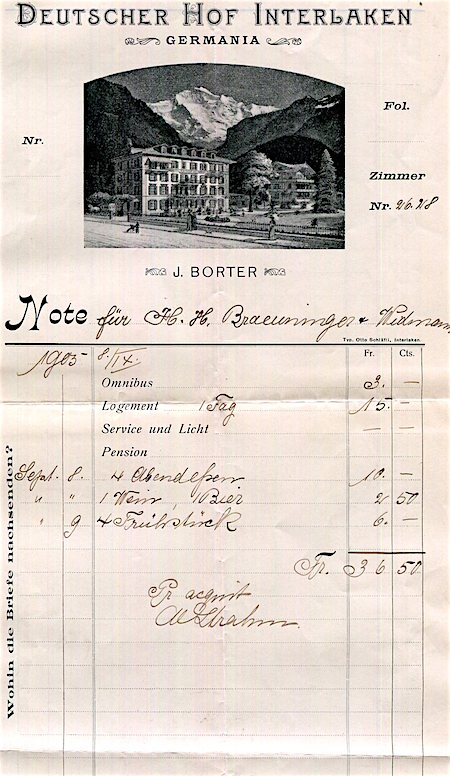 DEUTSCHER HOF INTERLAKEN
GERMANIA
Nr.
Fol.
Zimmer
Nr. 26.28
J. BORTER
Note für H. H. Braeuninger & Widmann
Typ. Otto Schläfli, Interlaken.
1905 8/IX. Fr. Cts.
Omnibus 3. —
Logement 1 Tag 15. —
Service und Licht — —
Pension
Sept. 8. 4 Abendessen 10. —
" " 1 Wein, 1 Bier 2 50
" 9 4 Frühstück 6. —
Fr. 36 50
Pr acquit
Wohin die Briefe nachsenden?